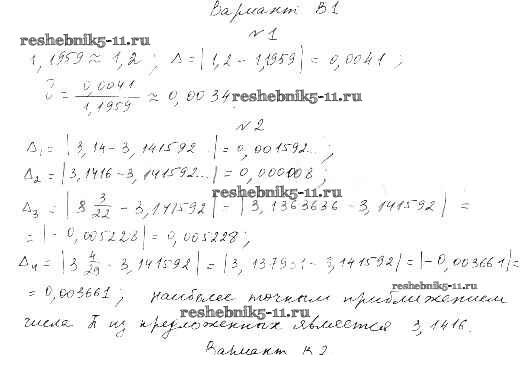 Вариант В.1
№1
reshebnik5-11.ru
1,1959 ≈ 1,2 ; Δ = |1,2 − 1,1959| = 0,0041 ;
δ = 0,0041 / 1,1959 ≈ 0,0034 reshebnik5-11.ru
№2
Δ₁ = |3,14 − 3,141592...| = 0,001592... ;
Δ₂ = |3,1416 − 3,141592...| = 0,000008 ;
reshebnik5-11.ru
Δ₃ = |3 3/22 − 3,141592| = |3,1363636 − 3,141592| =
= |− 0,005228| = 0,005228 ;
Δ₄ = |3 4/29 − 3,141592| = |3,137931 − 3,141592| = |−0,003661| =
reshebnik5-11.ru
= 0,003661 ; наиболее точным приближением
reshebnik5-11.ru
числа π из предложенных является 3,1416.
Вариант В2